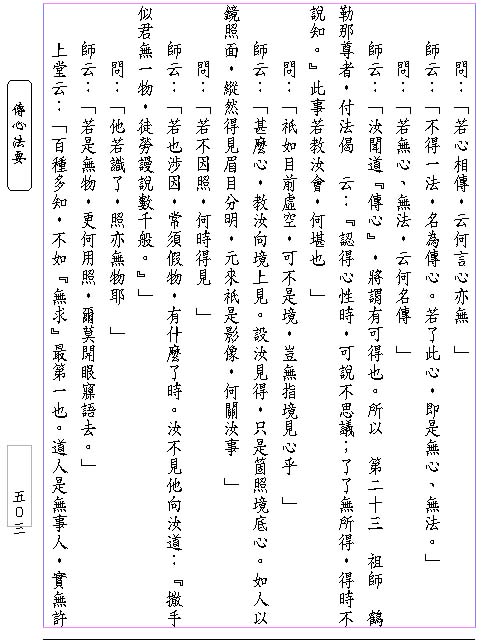 問：「若心相傳，云何言心亦無　」
師云：「不得一法，名為傳心。若了此心，即是無心、無法。」
問：「若無心、無法，云何名傳　」
師云：「汝聞道『傳心』，將謂有可得也。所以　第二十三　祖師　鶴
勒那尊者，付法偈　云：『認得心性時，可說不思議；了了無所得，得時不
說知。』此事若教汝會，何堪也　」
問：「祇如目前虛空，可不是境，豈無指境見心乎　」
師云：「甚麼心，教汝向境上見。設汝見得，只是箇照境底心。如人以
鏡照面，縱然得見眉目分明，元來祇是影像，何關汝事　」
問：「若不因照，何時得見　」
師云：「若也涉因，常須假物，有什麼了時。汝不見他向汝道：『撒手
似君無一物，徒勞謾說數千般。』」
問：「他若識了，照亦無物耶　」
師云：「若是無物，更何用照，爾莫開眼寱語去。」
上堂云：「百種多知，不如『無求』最第一也。道人是無事人，實無許
傳心法要
五０三